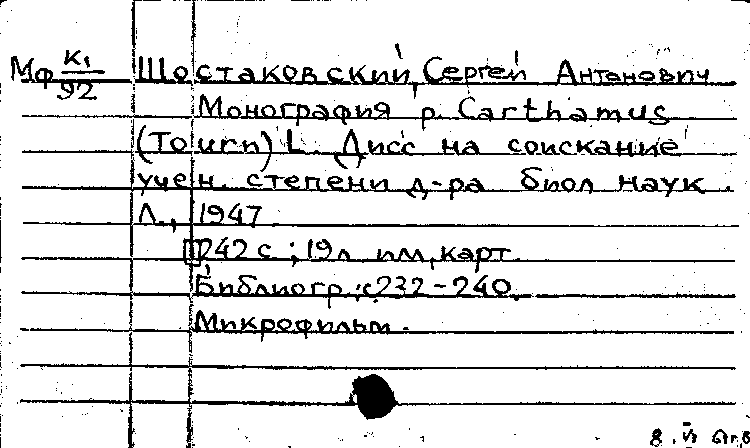 Мф К1/92 Шостаковский, Сергей Антонович
Монография р. Carthamus
(Tourn) L. Дисс на соискание
учен. степени д-ра биол наук.
Л., 1947
242 с ; 19 л ил, карт.
Библиогр.: с 232-240.
Микрофильм.